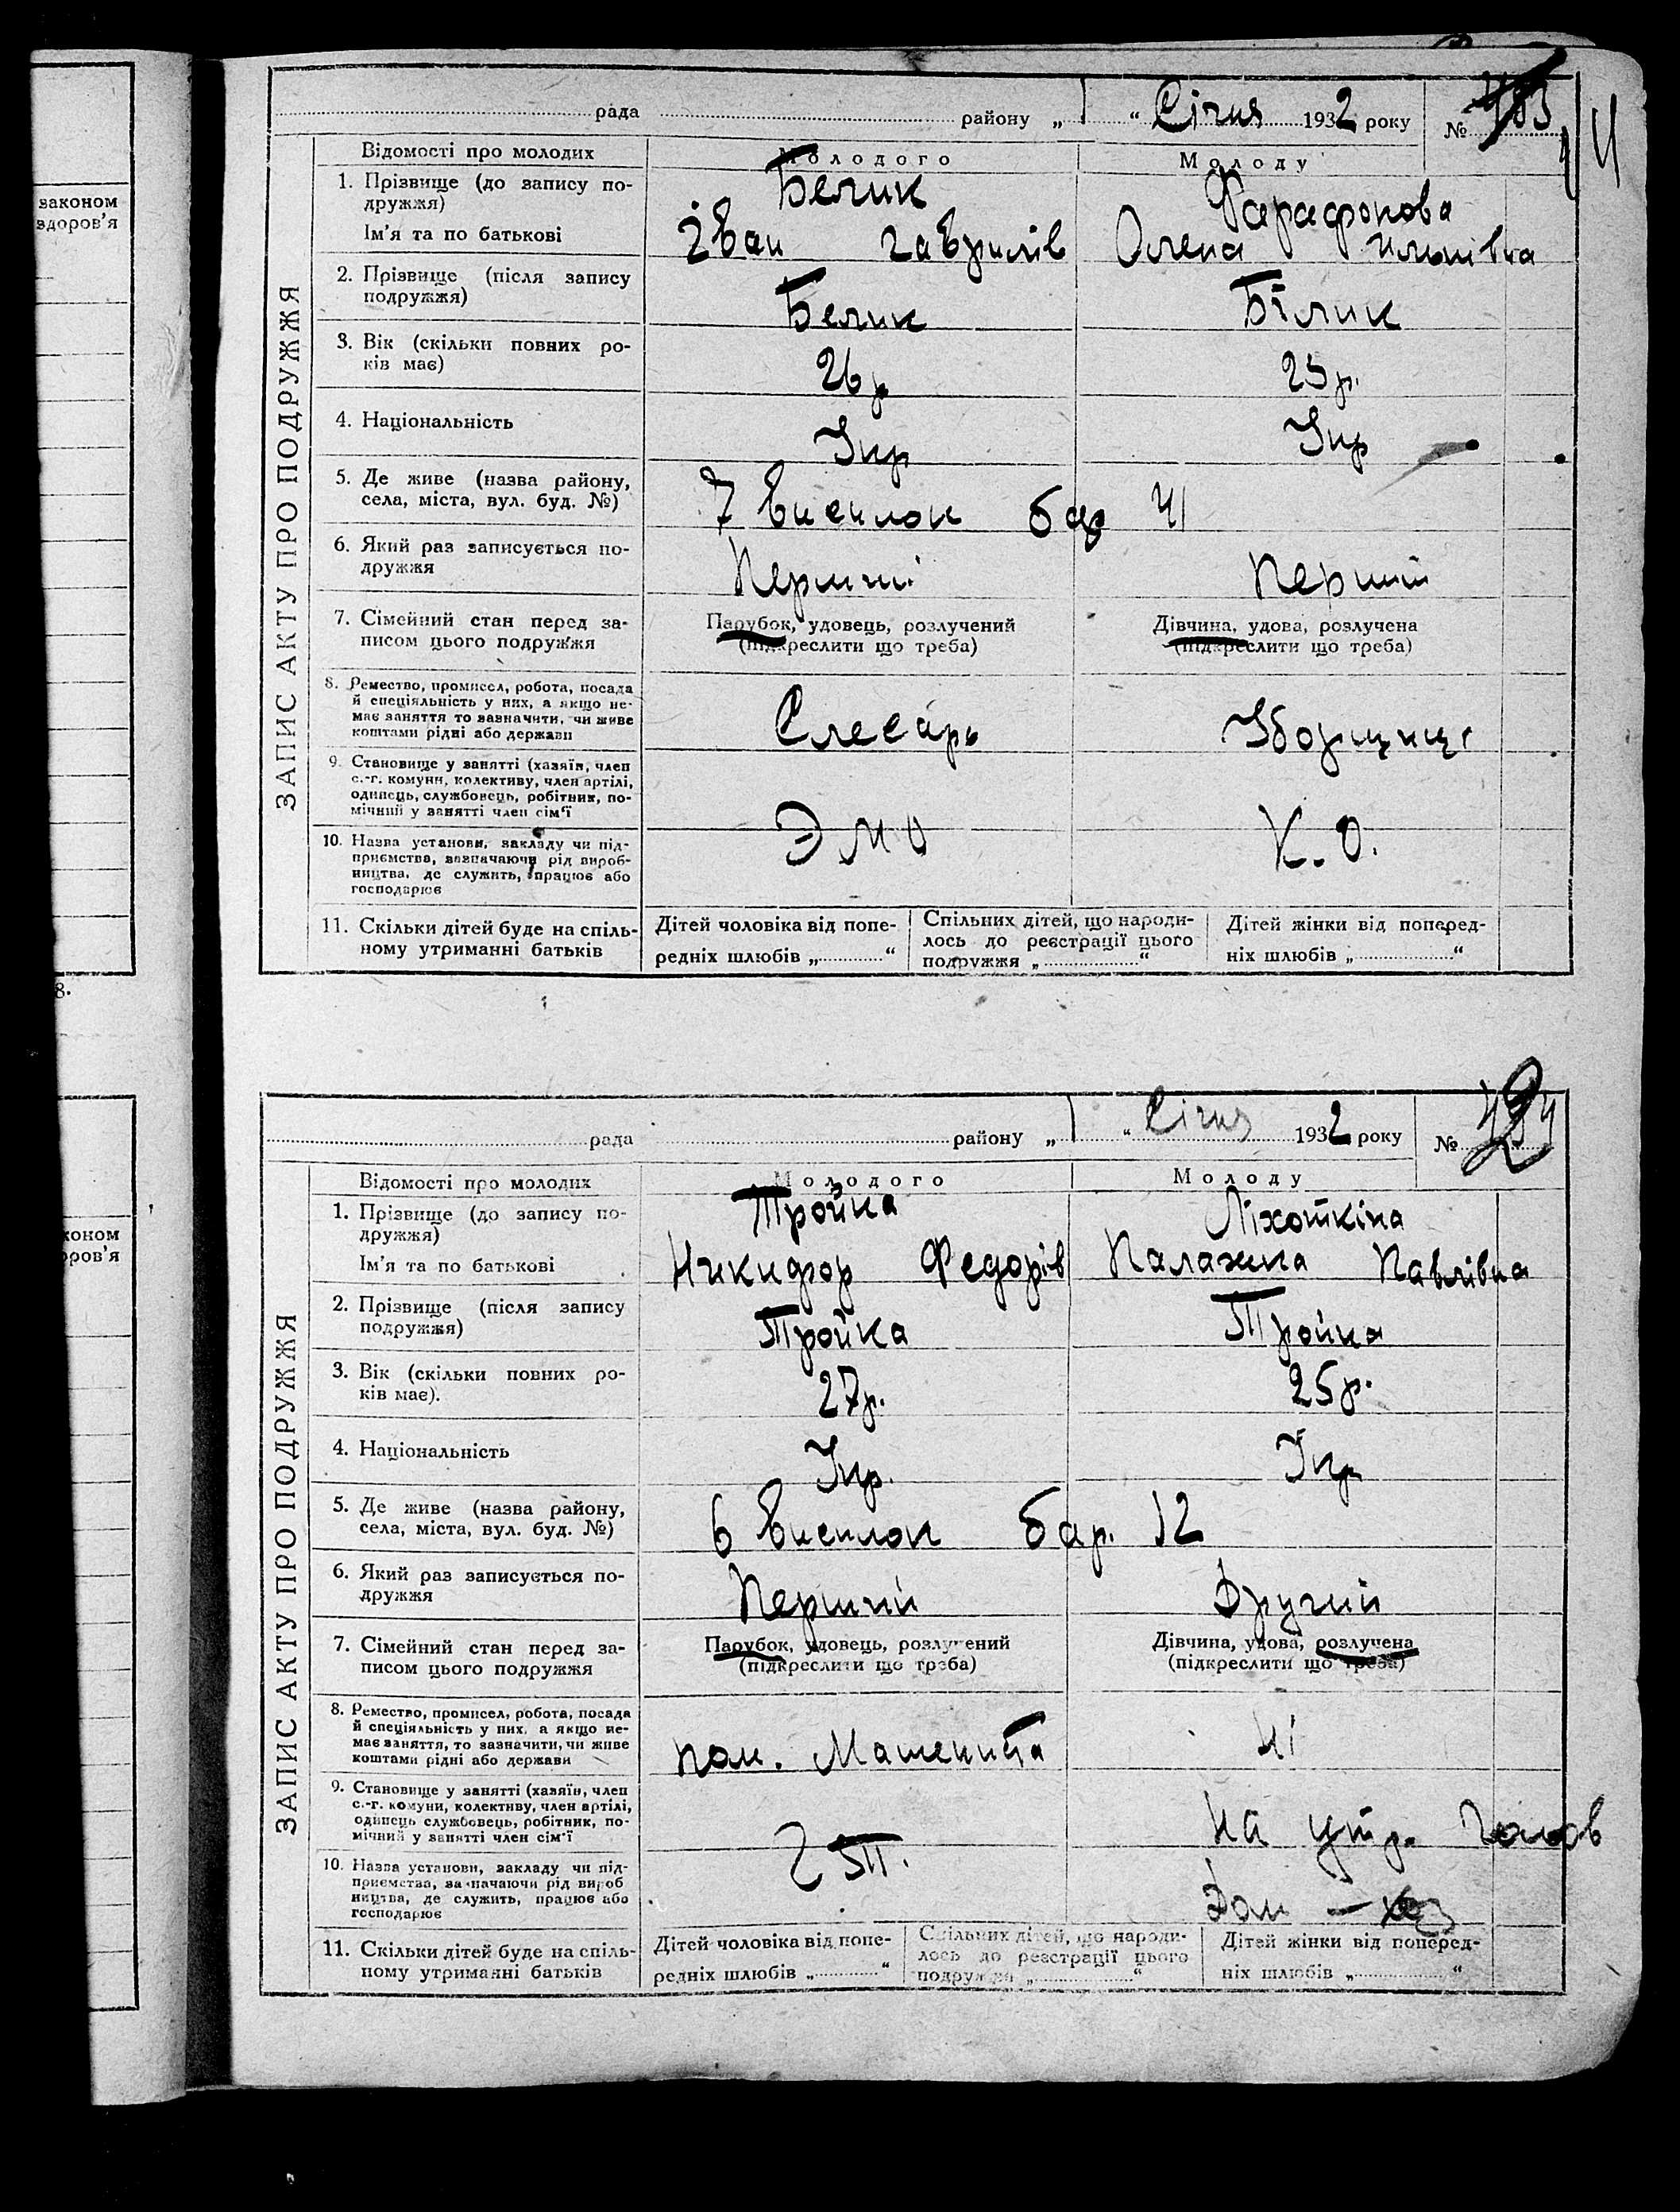 законом
здоров'я
8.
коном
ров'я
рада району „ 1 " Січня 1932 року №
Відомості про молодих Молодого Молоду
ЗАПИС АКТУ ПРО ПОДРУЖЖЯ
1. Прізвище (до запису по- Белик Фарафонова
дружжя)
Ім'я та по батькові Іван Гаврилів Олена
2. Прізвище (після запису Белик Білик
подружжя)
3. Вік (скільки повних ро- 26р 25р.
ків має)
4. Національність Укр Укр
5. Де живе (назва району, 7 Виселок бар 41
села, міста, вул. буд. №)
6. Який раз записується по- Перший Перший
дружжя
7. Сімейний стан перед за- Парубок, удовець, розлучений Дівчина, удова, розлучена
писом цього подружжя (підкреслити що треба) (підкреслити що треба)
8. Ремество, промисел, робота, посада
й спеціяльність у них, а якщо не-
має заняття то зазначити, чи живе Слесарь Уборщиця
коштами рідні або держави
9. Становище у занятті (хазяїн, член
с.-г. комуни, колективу, член артілі,
одинець, службовець, робітник, по-
мічний у занятті член сім'ї Э М О К. О.
10. Назва установи, закладу чи під-
приємства, зазначаючи рід вироб-
ництва, де служить, працює або
господарює
11. Скільки дітей буде на спіль- Дітей чоловіка від попе- Спільних дітей, що народи- Дітей жінки від поперед-
ному утриманні батьків редніх шлюбів „ " лось до реєстрації цього ніх шлюбів „ "
подружжя „ "
рада району „ 1 " Січня 1932 року № 2
Відомості про молодих Молодого Молоду
ЗАПИС АКТУ ПРО ПОДРУЖЖЯ
1. Прізвище (до запису по- Тройка Ліхоткіна
дружжя)
Ім'я та по батькові Никифор Федорів Палажка Павлівна
2. Прізвище (після запису Тройка Тройка
подружжя)
3. Вік (скільки повних ро- 27р. 25р.
ків має).
4. Національність Укр. Укр
5. Де живе (назва району, 6 Виселок бар. 12
села, міста, вул. буд. №)
6. Який раз записується по- Перший Другий
дружжя
7. Сімейний стан перед за- Парубок, удовець, розлучений Дівчина, удова, розлучена
писом цього подружжя (підкреслити що треба) (підкреслити що треба)
8. Ремество, промисел, робота, посада
й спеціяльність у них, а якщо не-
має заняття, то зазначити, чи живе пом. Машениста Ні
коштами рідні або держави
9. Становище у занятті (хазяїн, член
с.-г. комуни, колективу, член артілі,
одинець службовець, робітник, по- На утр.
мічний у занятті член сім'ї
10. Назва установи, закладу чи під-
приємства, зазначаючи рід вироб
ництва, де служить, працює або Дом - хоз
господарює
11. Скільки дітей буде на спіль- Дітей чоловіка від попе- Спільних дітей, що народи- Дітей жінки від поперед-
ному утриманні батьків редніх шлюбів „ " лось до реєстрації цього ніх шлюбів „ "
подружжя „ "